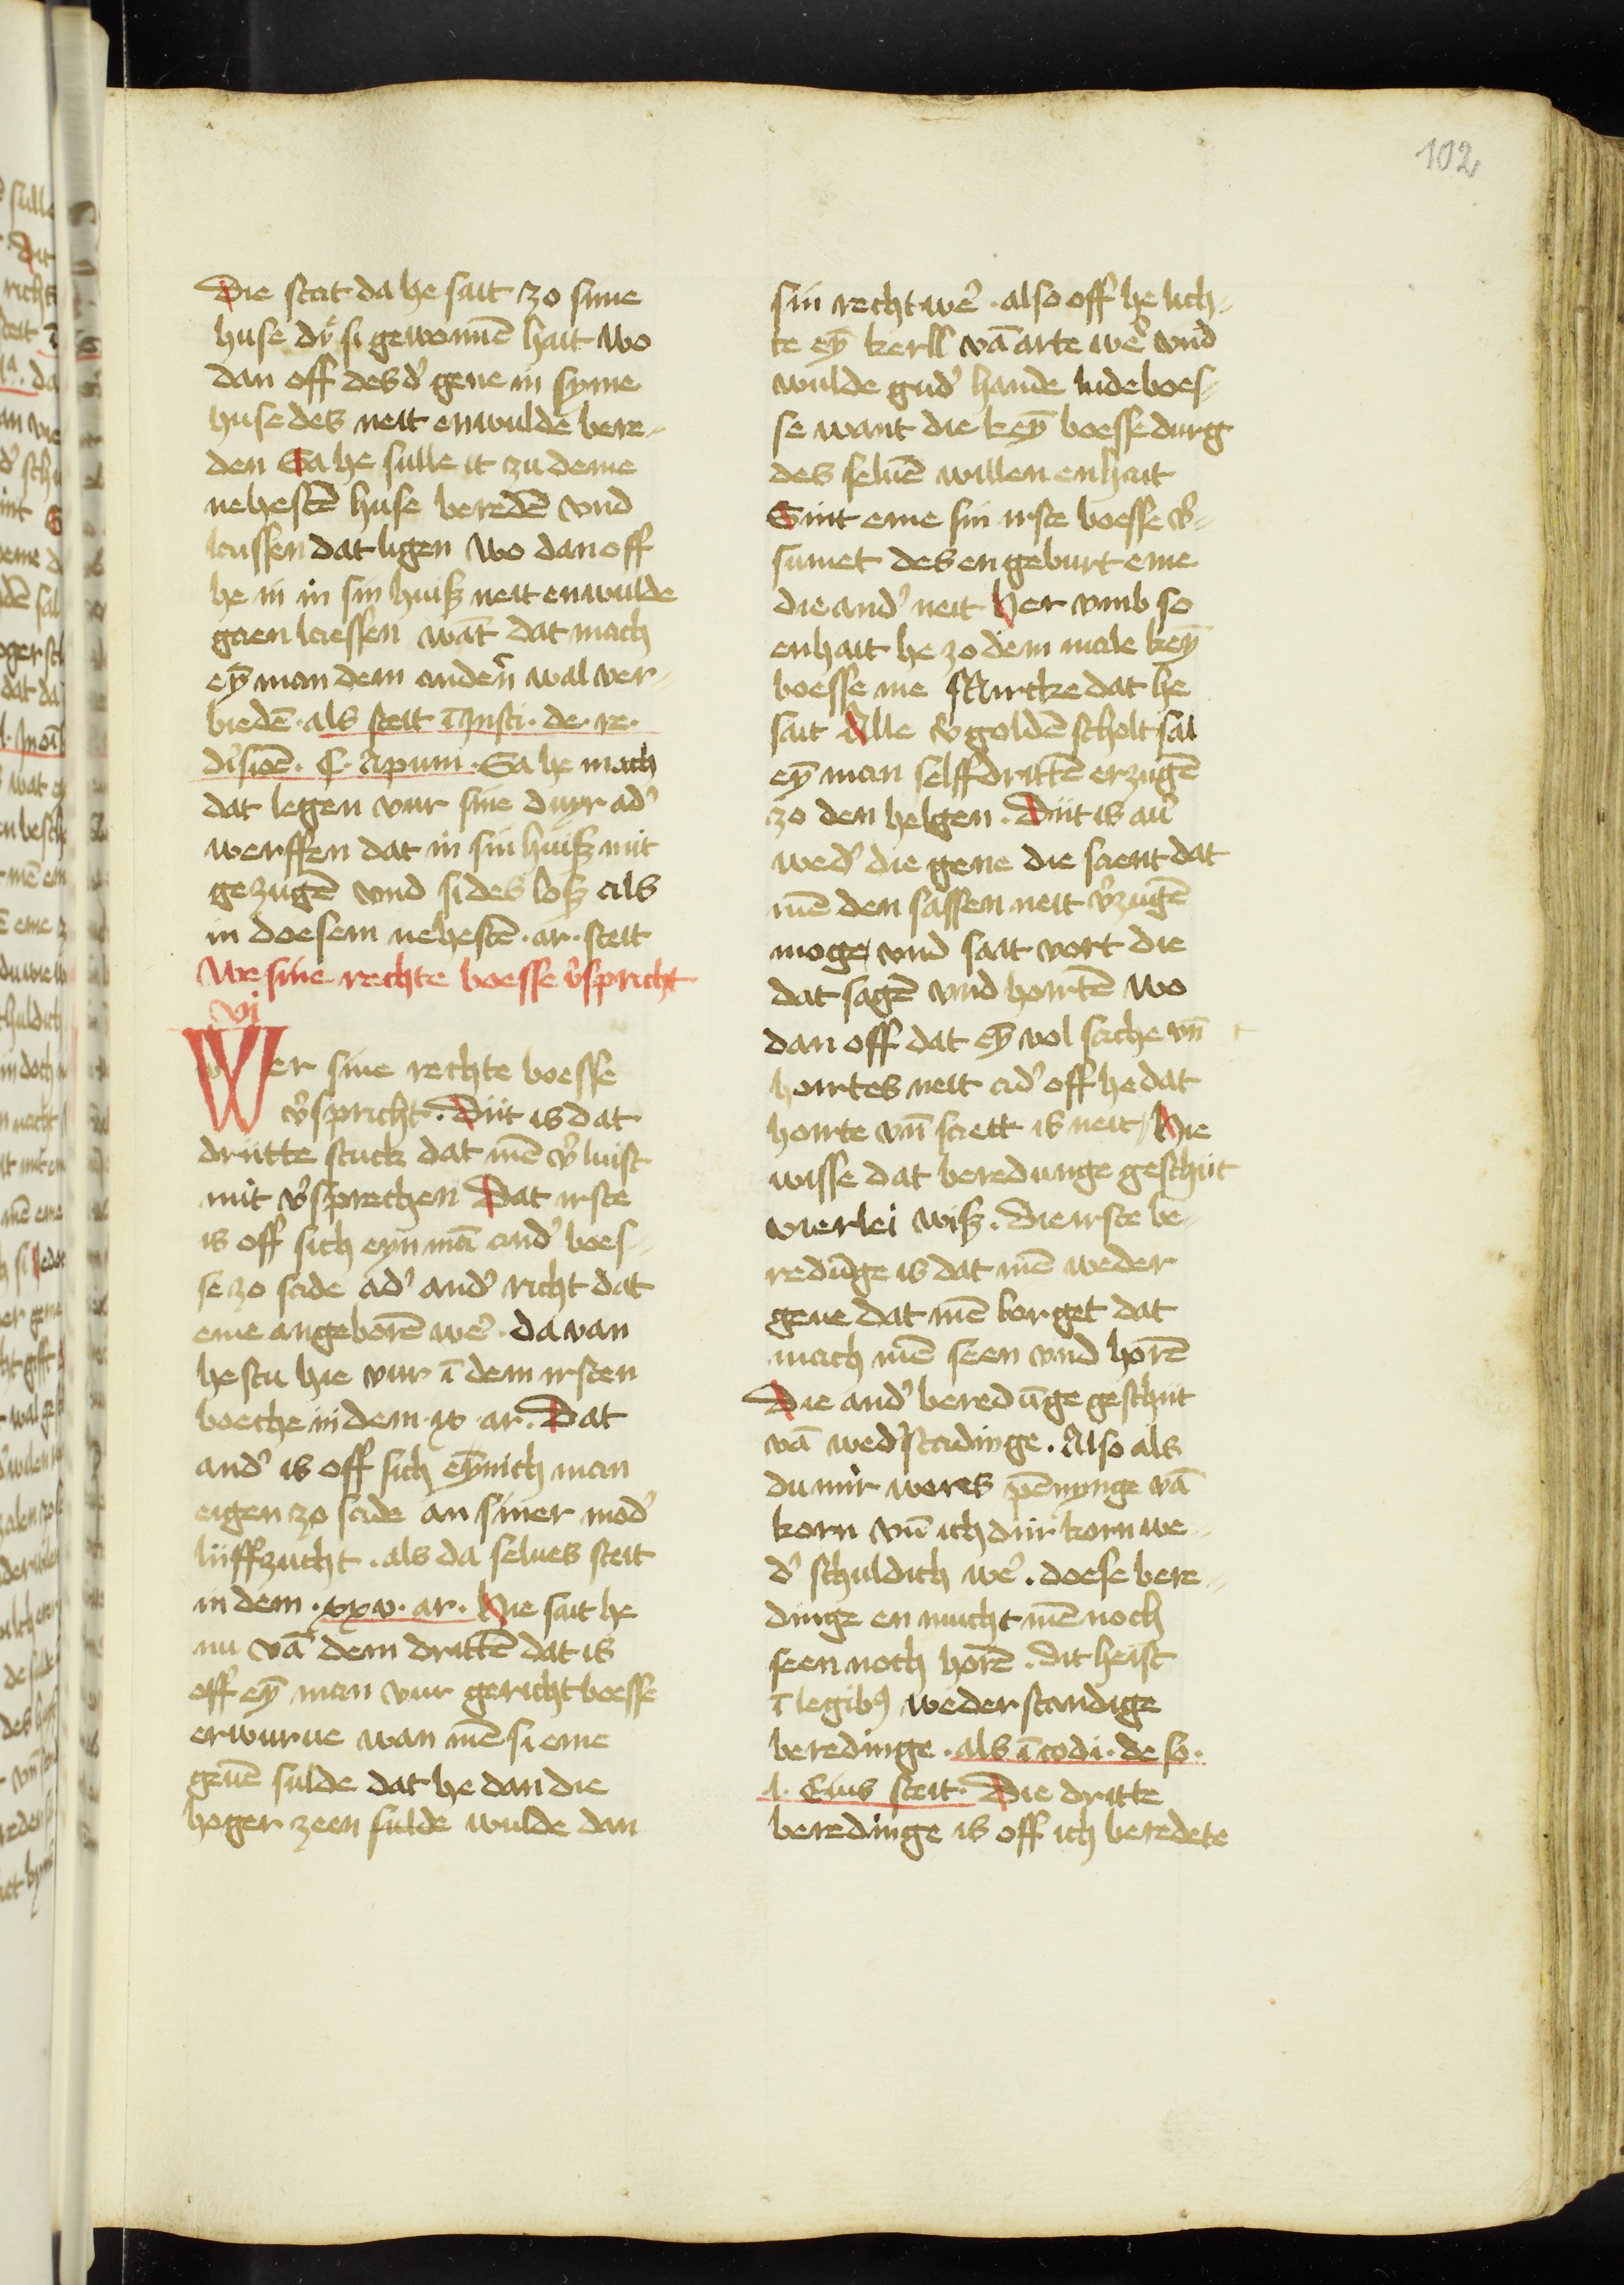 102
Die stat da he sait zo sime
huse dẏ si gewonnē hait wo
dan off des d' gene in syme
huse des neit enwulde bere-
den Sa he sulle it zu deme
nehestē huse beredē vnd
laissen dat ligen Wo dan off
he in in sin huiß neit enwulde
gaen laessen wāt dat mach
eȳ man dem andeñ wal ver-
biedē. als steit ī Insti. de. re.
diuisioē. C. Apum. Sa he mach
dat legen vur sine duyr ad'
werffen dat in sin huiß mit
gezugē vnd si des loß als
in doesem nehestē. ar. steit
We sine rechte boesse v'spricht
vi
Wer sine rechte boesse
v'spricht. Dit is dat
dritte stuck dat mē v'luist
mit v'sprechen Dat irste
is off sich eyn mā and' boes-
se zo sade ad' and' richt dat
eme angeborē we'. da van
hestu hie vur ī dem irsten
boeche in dem. ix. ar. Dat
and' is off sich eȳnich man
eigen zo sade an siner mod'
liiffzucht. als da selues steit
in dem. xxv. ar. Hie sait he
nu vā dem drittē dat is
off eȳ man vur gericht boesse
erwurue wan mē si eme
geuē sulde dat he dan die
hoger zeen sulde wulde dan
sin recht we'. also off he lich-
te eȳ kerll vā arte we' vnd
wulde gud' hande lude boes-
se want die keȳ boesse durg
des seluē willen enhait
Sint eme sin irste boesse v'-
sumet des en geburt eme
die and' neit Her vmb so
enhait he zo dem male keȳ
boesse me Mircke dat he
sait Alle v'goldē scholt sal
eȳ man selffdrittē erzugē
zo den helgen. Dit is au'
wed' die gene die saent dat
mē den sassen neit v'zugē
moge vnd sait vort die
dat sagē vnd hoirtē Wo
dan off dat eȳ vol sache vn̄
hoirtes neit ad' off he dat
horte vn̄ saett is neit Hie
wisse dat beredunge geschiit
vierlei wiß. Die irste be-
redūge is dat mē weder
geue dat mē borget dat
mach mē seen vnd horē
Die and' beredūge geschiit
vā wed'stadinge. Also als
du mir weres pēnynge vā
korn vn̄ ich dir korn we-
d' schuldich we'. doese bere-
dinge en mucht mē noch
seen noch horē. dit heist
ī legib9 weder standige
beredinge. als ī codi. de so.
l. Eius steit. Die dritte
beredinge is off ich beredete